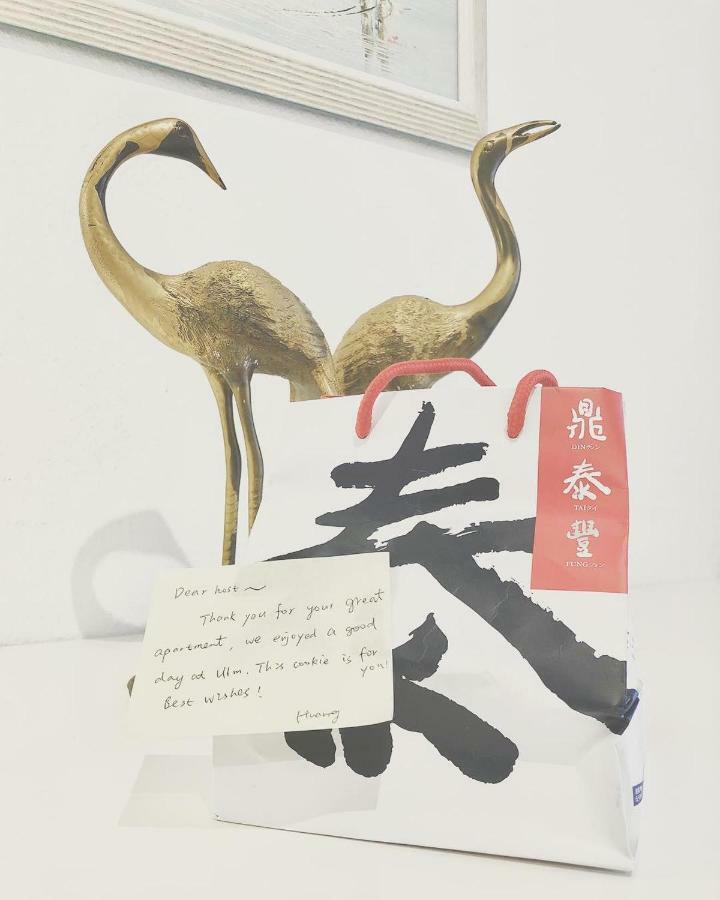 泰
鼎
DINディン
泰
TAIタイ
豐
FUNGフォン
Dear host ~
Thank you for your great
apartment, we enjoyed a good
day at Ulm. This cookie is for
you!
Best wishes!
Huang